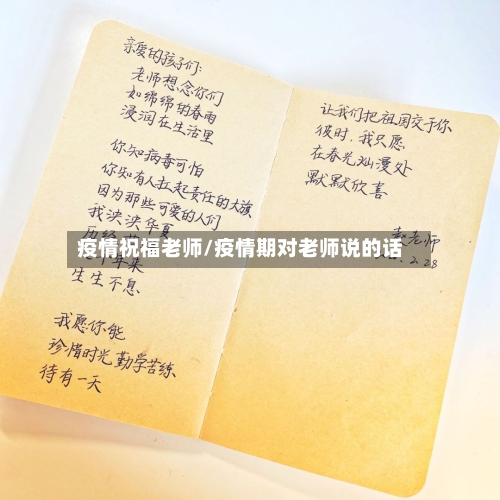 亲爱的孩子们:
老师想念你们
如绵绵的春雨
浸润在生活里
你知病毒可怕
你知有人扛起责任的大旗
因为那些可爱的人们
我泱泱华夏
生生不息
我愿你能
珍惜时光 勤学苦练
待有一天
让我们把祖国交于你
彼时,我只愿
在春光灿漫处
默默欣喜
老师
2.28
疫情祝福老师/疫情期对老师说的话